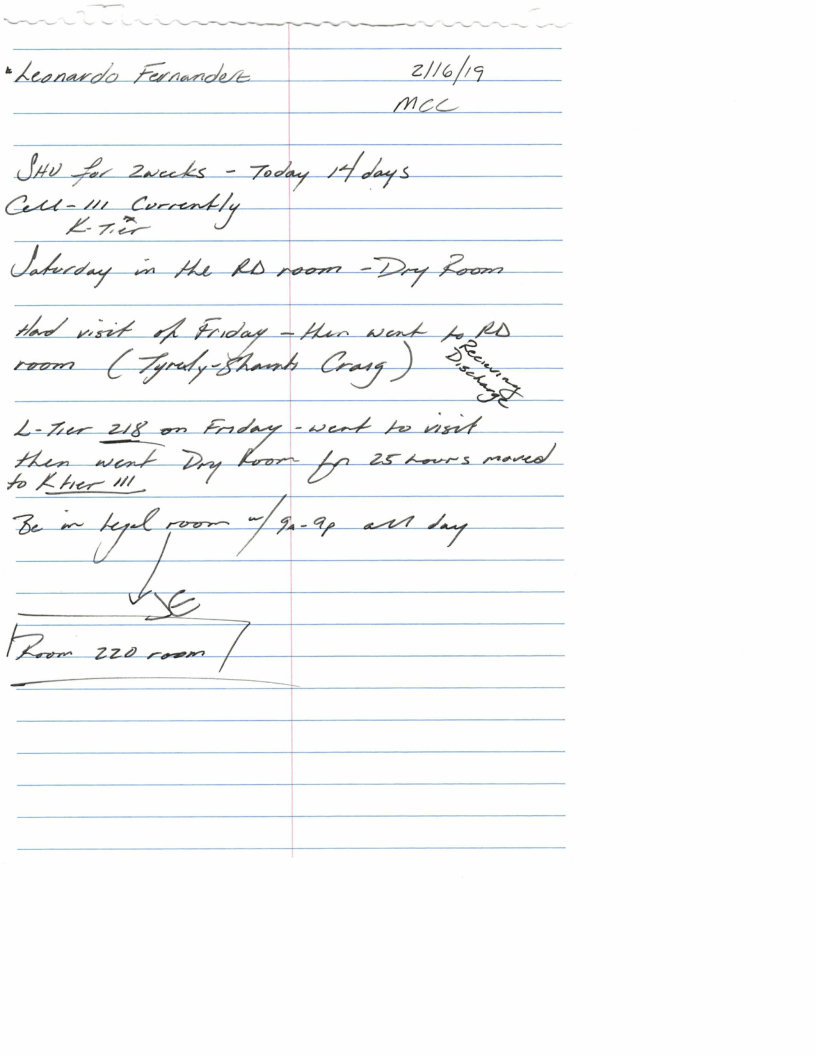 * Leonardo Fernandez
2/16/19
MCC
SHU for 2 weeks - Today 14 days
Cell - 111 Currently
K-Tier
Saturday in the RD room - Dry Room
Had visit of Friday - then went to RD
Recieving
Discharge
room ( Craig )
L-Tier 218 on Friday - went to visit
then went Dry Room for 25 hours moved
to K tier 111
Be in Legal room w/ 9a-9p all day
Room 220 room